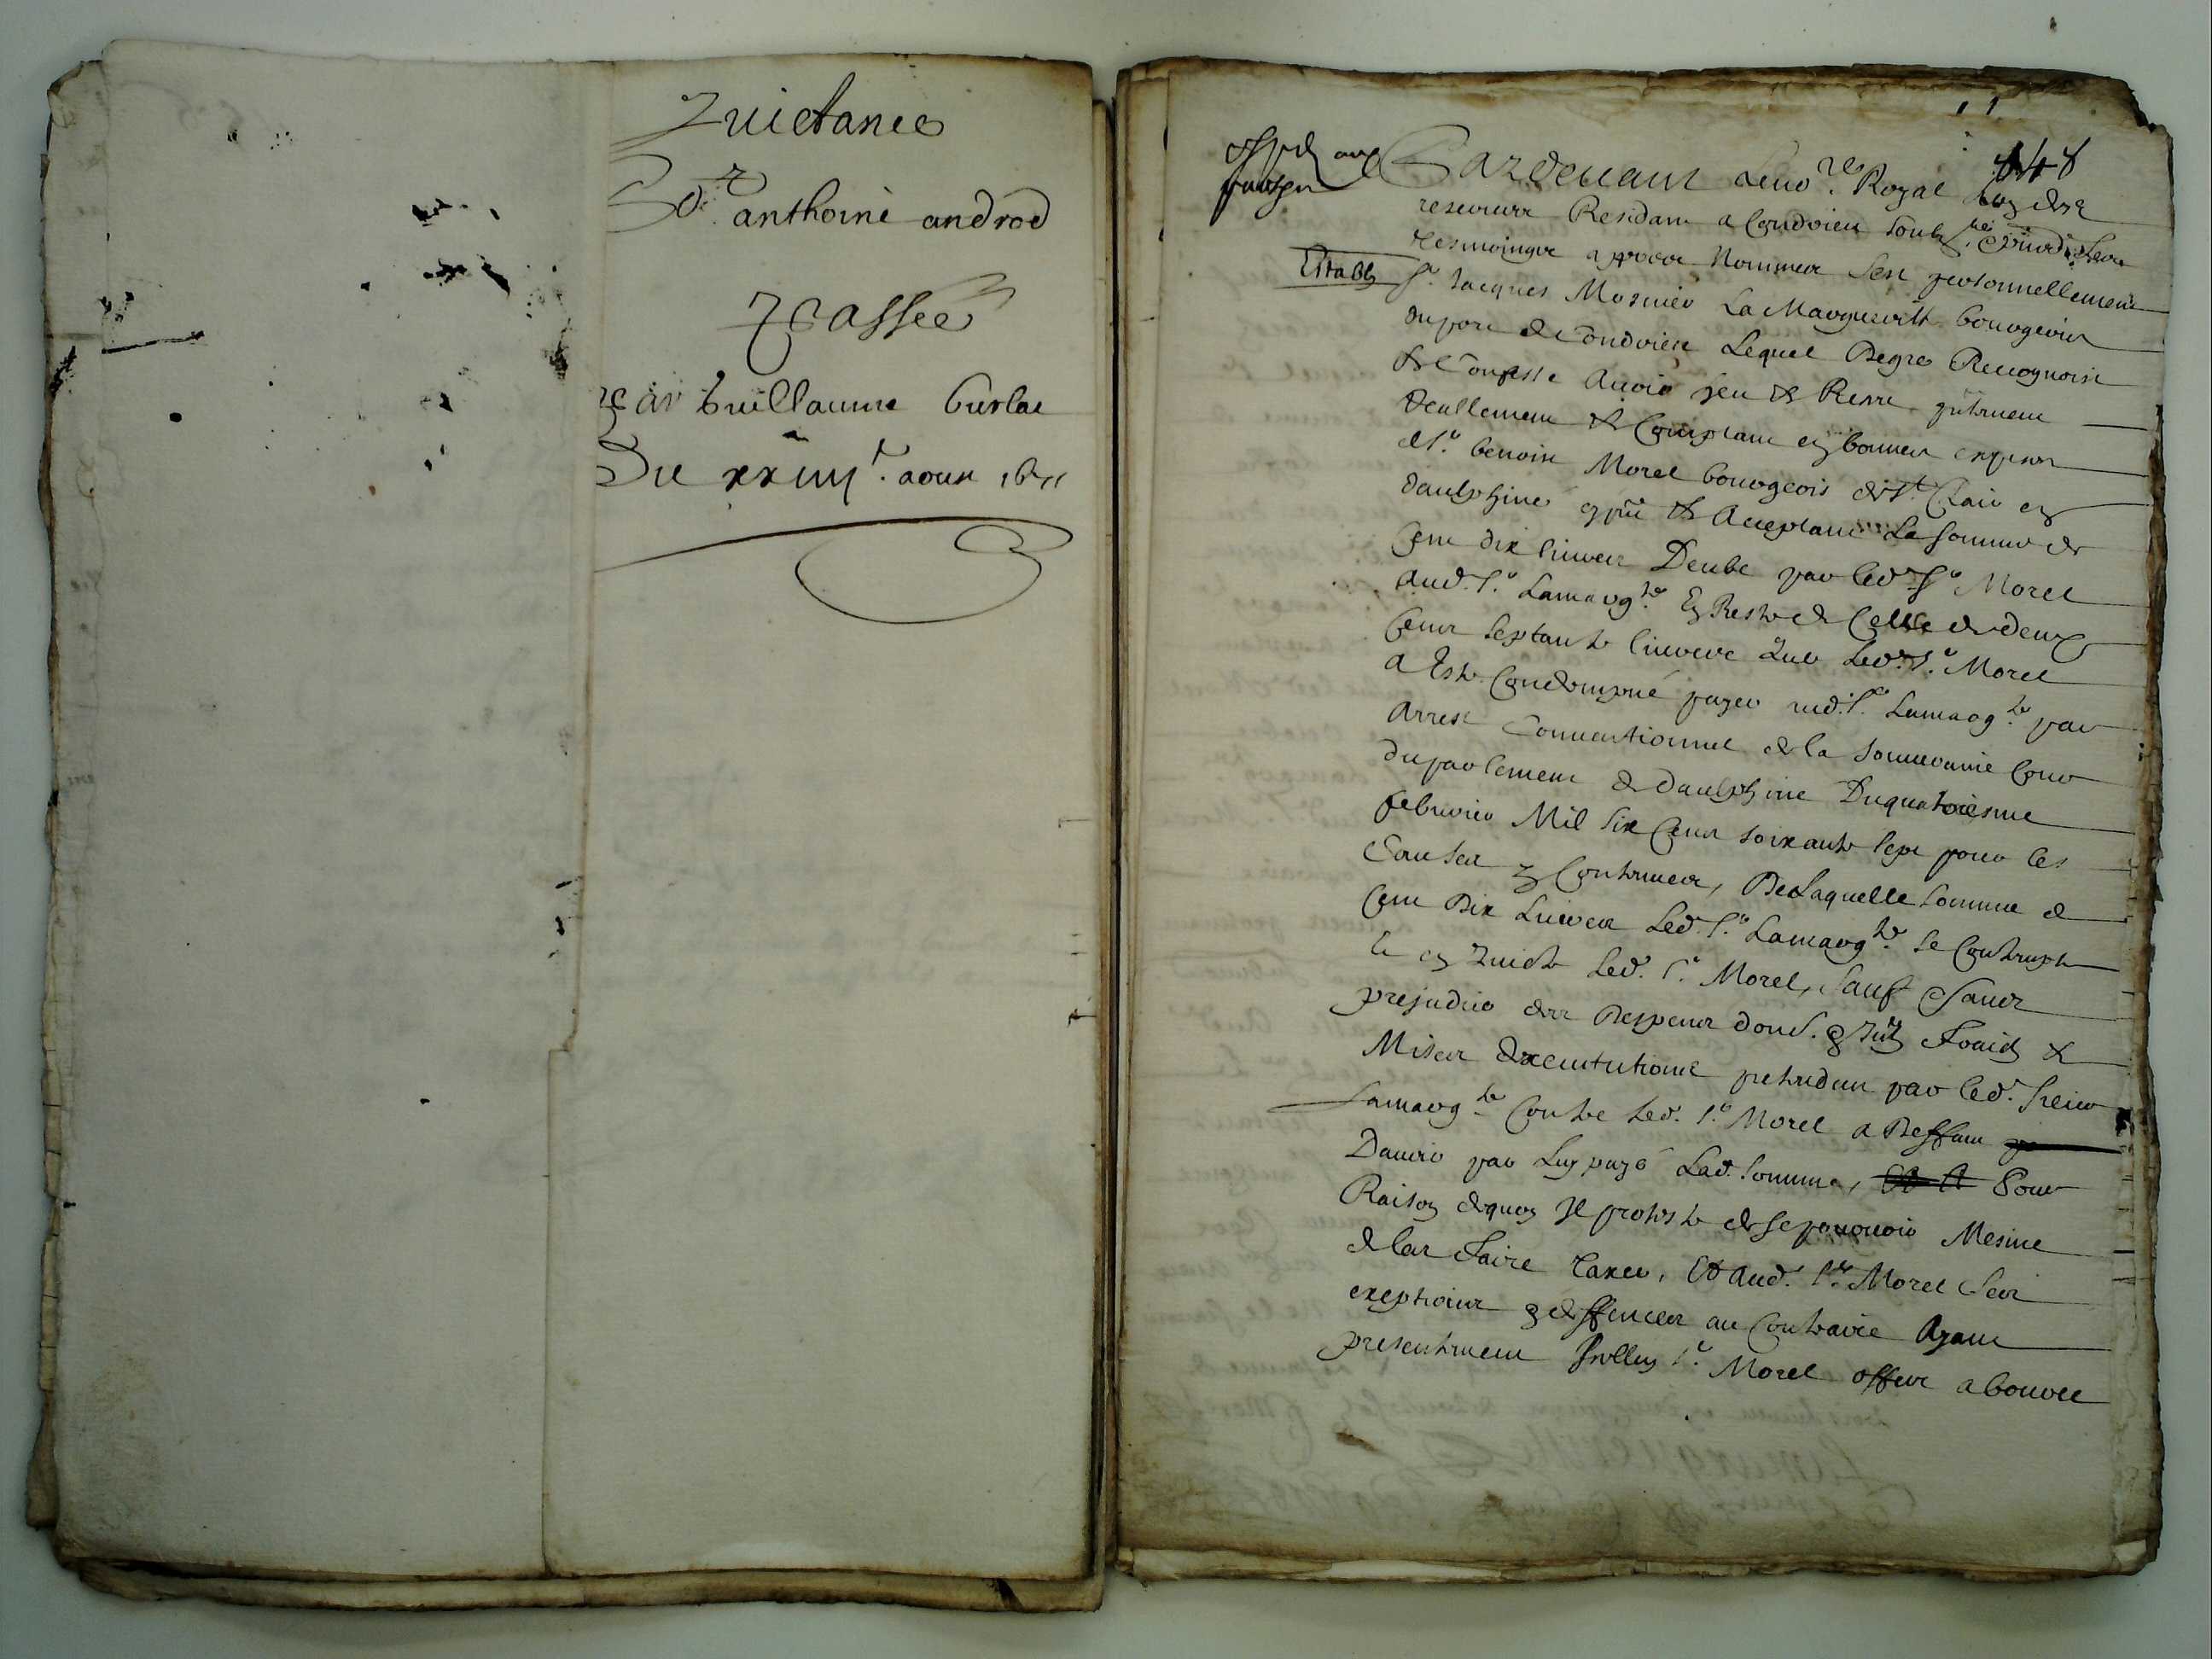 Quictance
Sr anthoine androd
Passée
par Guillaume
Du xxiiii.e aoust 1671
148
Pardevant Leno.re Royal
reservé Residant a Condrieu soub.né
tesmoingtz apres Nommez sest personnellement
Establ Sr. Jacques Mosnier La Margueritte bourgeois
du port de Condrieu Lequel Degré Recognoist
& Confesse Avoir heu & Receu
Reallement & Comptant en bonnes especes
de Sr. benoist Morel bourgeois de St. Clair en
daulphiné & Acceptant La somme de
Cent dix livres Deube par led. Sr. Morel
Aud. Sr. Lamarg.te En Reste de Celle de deux
Cents septante livres Que Led. Sr. Morel
a Este Condempné payer aud. Sr. Lamarg.te par
Arrest Conventionnel de la Souveraine Cour
du parlement de Daulphiné Du quatorziesme
febvrier Mil Six Cents soixante sept pour les
Causes y Contenues, De Laquelle somme de
Cent Dix Livres Led. Sr. Lamarg.te se Contente
& en Quicte Led. Sr. Morel, Sauf & Sans
prejudice des Despens Fraictz &
Mises pretendus par led. Sieur
Lamarg.te Contre Led. Sr. Morel a Deffaut
Davoir par Luy payé Lad. Somme, Pour
Raison dequoy Il proteste de se pourvoir Mesme
de les Faire Taxer, Et Aud. Sr. Morel Ses
exeptions & deffences au Contraire Ayant
presentement Sr. Morel offert a bource